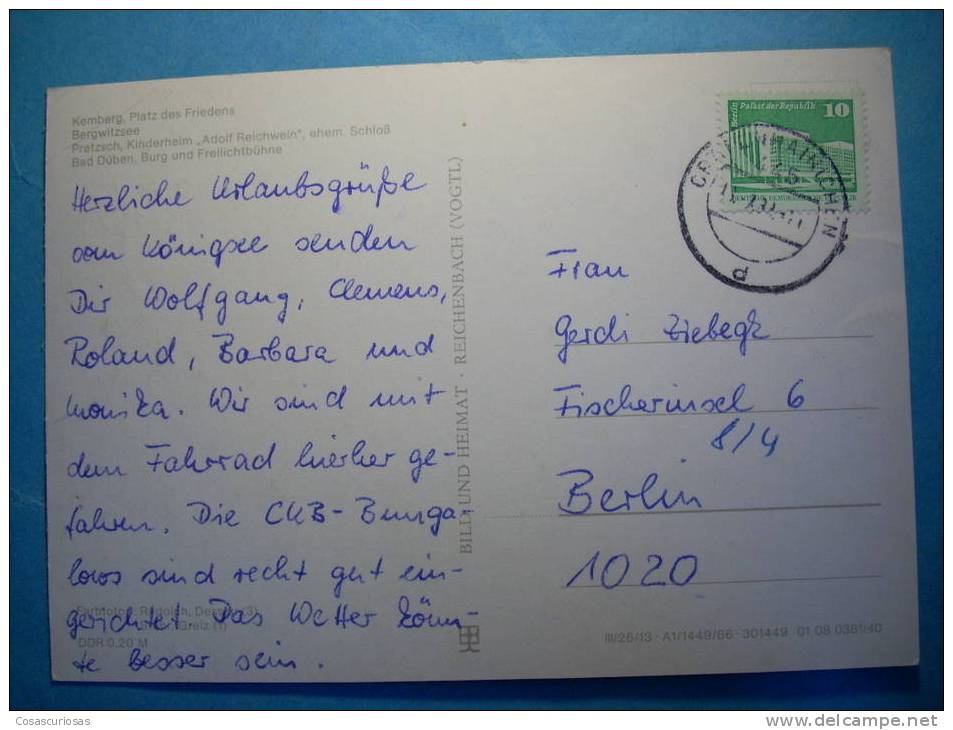 Kemberg, Platz des Friedens
Bergwitzsee
Pretzsch, Kinderheim „Adolf Reichwein", ehem. Schloß
Bad Düben, Burg und Freilichtbühne
Herzliche Urlaubsgrüße
vom Königsee senden
Dir Wolfgang, Clemens,
Roland, Barbara und
Monika. Wir sind mit
dem Fahrrad hierher ge-
fahren. Die CKB-Bunga-
lows sind recht gut ein-
gerichtet. Das Wetter könn-
te besser sein.
DDR 0,20 M
BILD UND HEIMAT · REICHENBACH (VOGTL)
Berlin Palast der Republik 10
Frau
Gerdi Ziebegk
Fischerinsel 6
8/4
Berlin
1020
III/26/13 · A1/1449/86 · 301449 01 08 0381/40
Cosascuriosas
www.delcampe.net